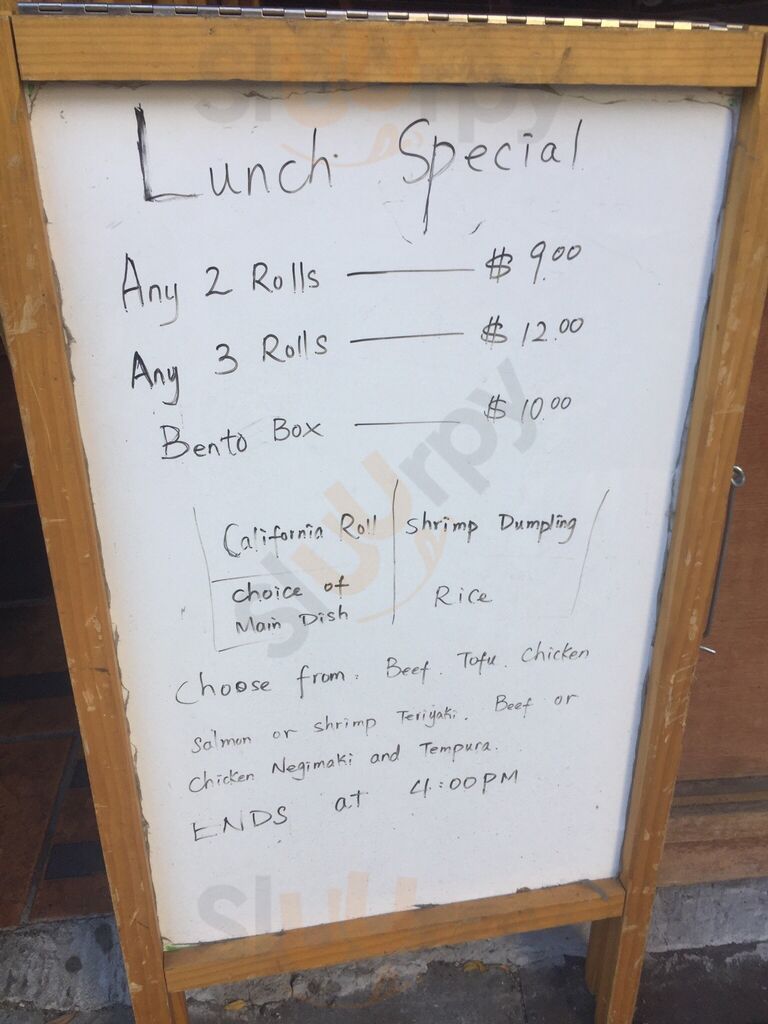 Lunch Special
Any 2 Rolls — $ 9.00
Any 3 Rolls — $ 12.00
Bento Box — $ 10.00
California Roll | Shrimp Dumpling
Choice of
Main Dish | Rice
Choose from: Beef. Tofu. Chicken
Salmon or shrimp Teriyaki. Beef or
Chicken Negimaki and Tempura.
ENDS at 4:00PM
slurpy
sluurpy
sluu